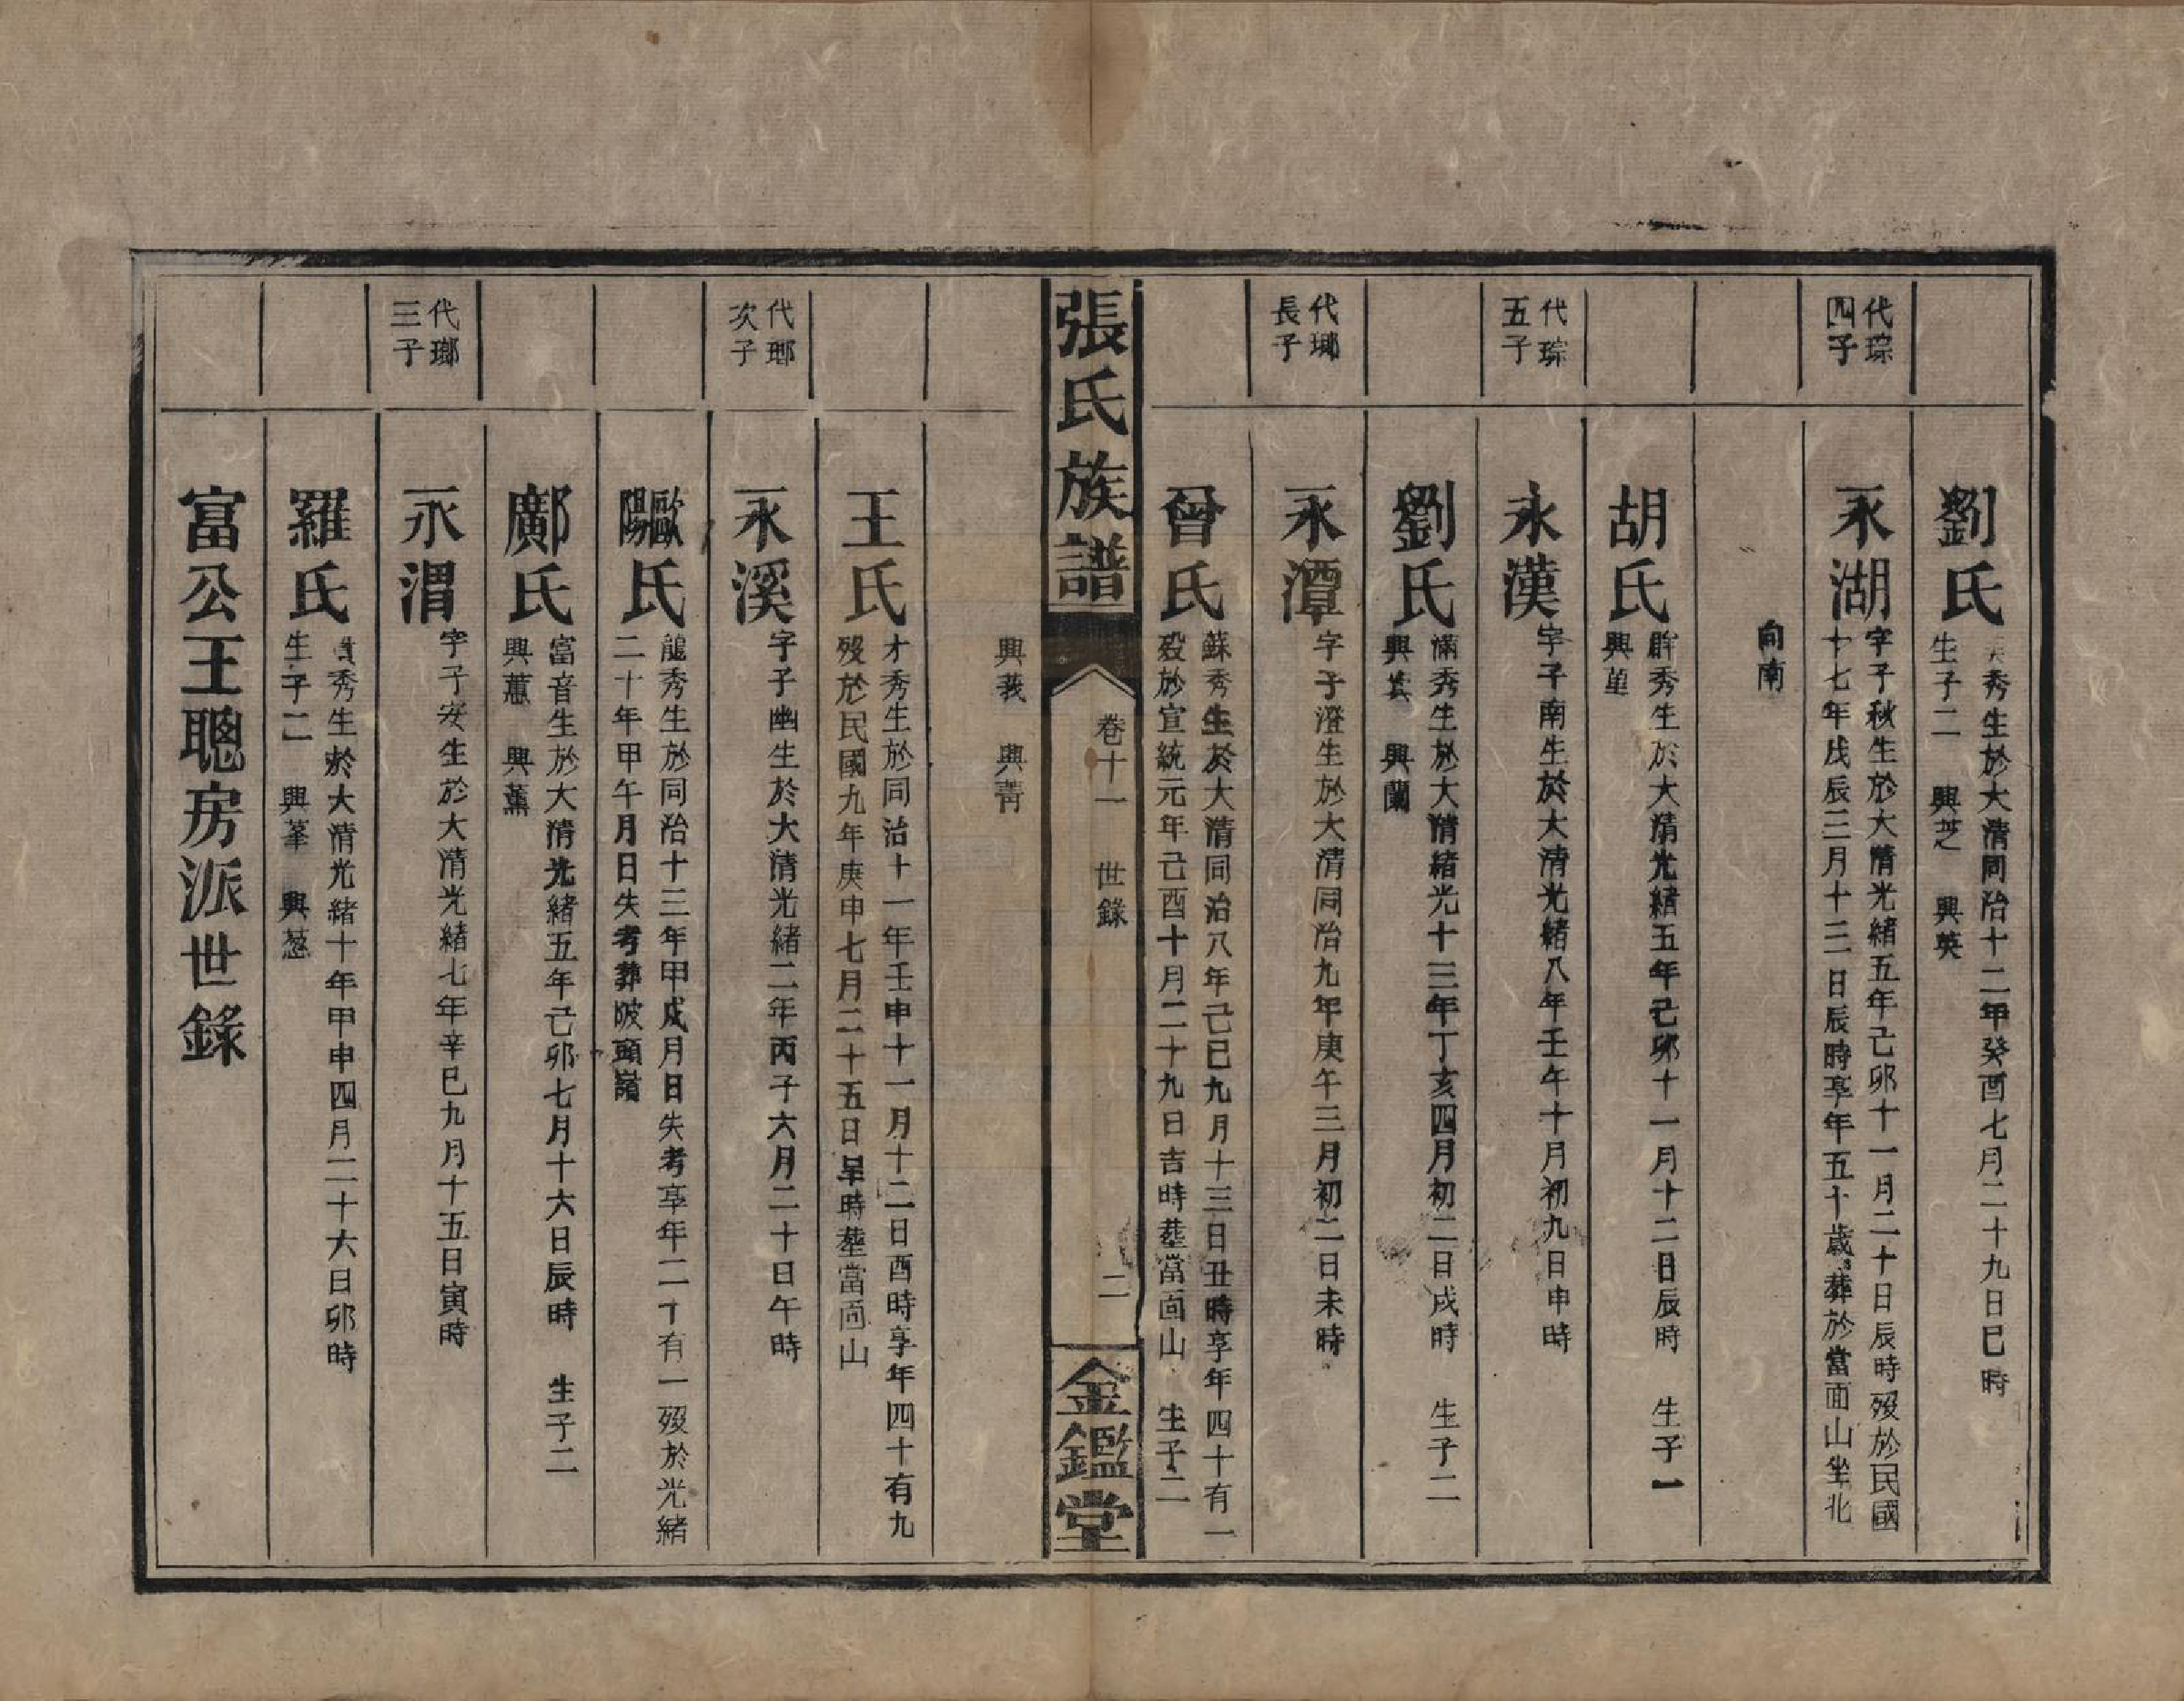 劉氏
秀生於大清同治十二年癸酉七月二十九日巳時
生子二　興芝　興英
代琮
四子
永湖
字子秋生於大清光緒五年己卯十一月二十日辰時歿於民國
十七年戊辰三月十二日辰時享年五十歲葬於當面山坐北
向南
胡氏
群秀生於大清光緒五年己卯十一月十二日辰時　生子一
興菫
代琮
五子
永漢
字子南生於大清光緒八年壬午十月初九日申時
劉氏
滿秀生於大清緒光十三年丁亥四月初二日戌時　生子二
興芸　興蘭
代瑯
長子
永潭
字子澄生於大清同治九年庚午三月初二日未時
曾氏
蘇秀生於大清同治八年己巳九月十三日丑時享年四十有一
歿於宣統元年己酉十月二十九日吉時塟當面山　生子二
張氏族譜
卷十一　世錄
二
金鑑堂
興莪　興菁
王氏
才秀生於同治十一年壬申十一月十二日酉時享年四十有九
歿於民國九年庚申七月二十五日早時塟當面山
代瑯
次子
永溪
字子幽生於大清光緒二年丙子六月二十日午時
歐陽氏
龍秀生於同治十三年甲戌月日失考享年二十有一歿於光緒
二十年甲午月日失考葬陂頭嶺
鄺氏
富音生於大清光緒五年己卯七月十六日辰時　生子二
興蕙　興薰
代瑯
三子
永渭
字子安生於大清光緒七年辛巳九月十五日寅時
羅氏
秀生於大清光緒十年甲申四月二十六日卯時
生子二　興峯　興葱
富公王聰房派世錄